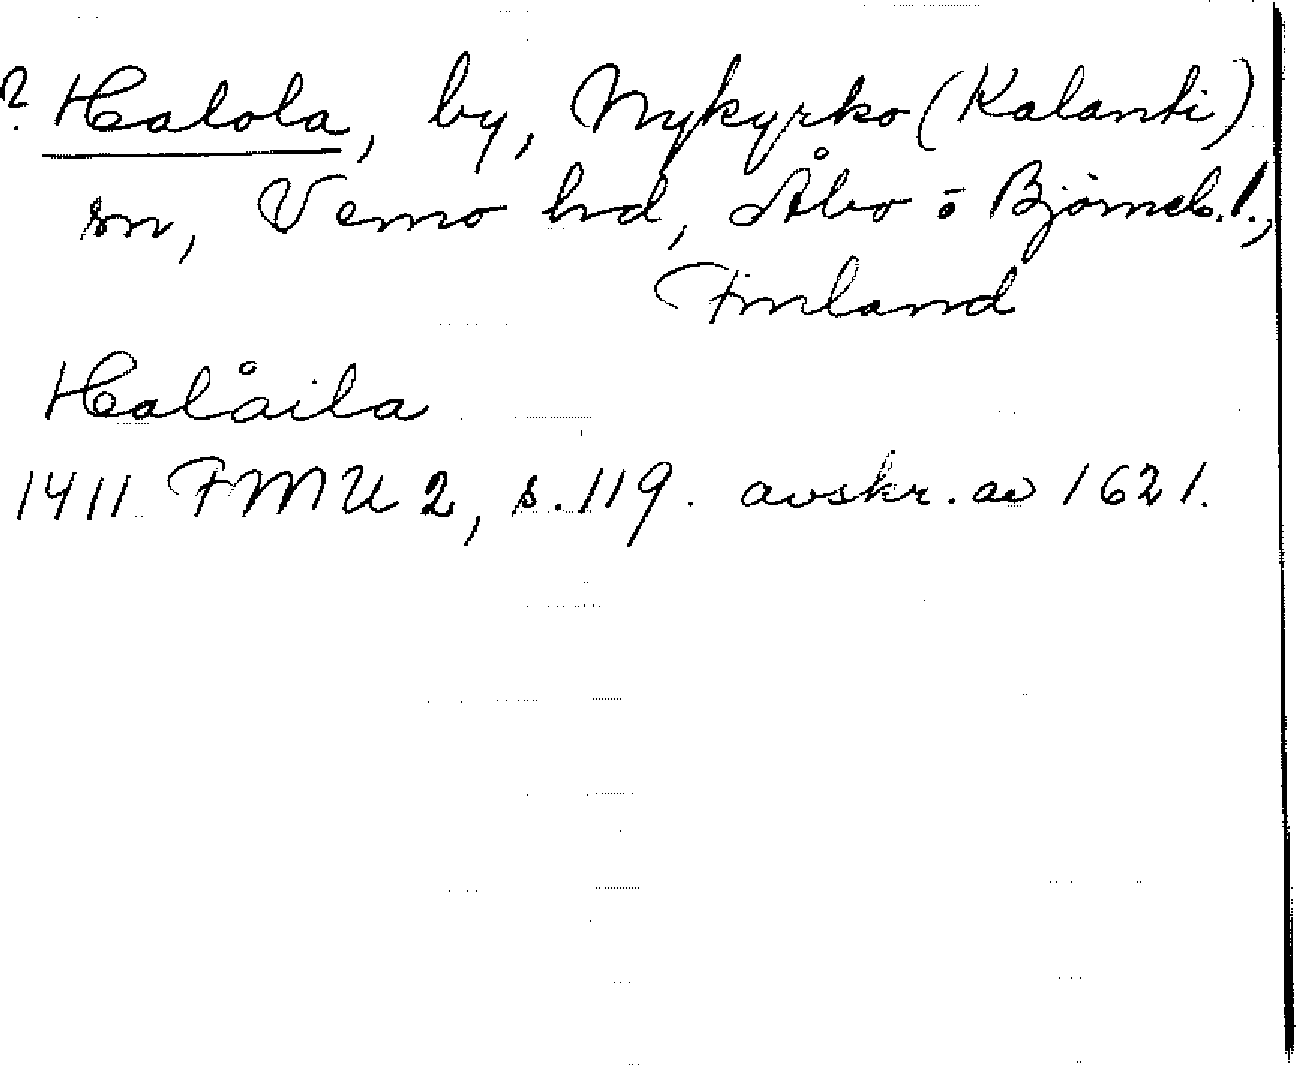 ? Halola, by, Nykyrko (Kalanti)
sn, Vemo hd, Åbo o Björneb. l.,
Finland
Halåila
1411 FMU 2, s. 119. avskr. av 1621.